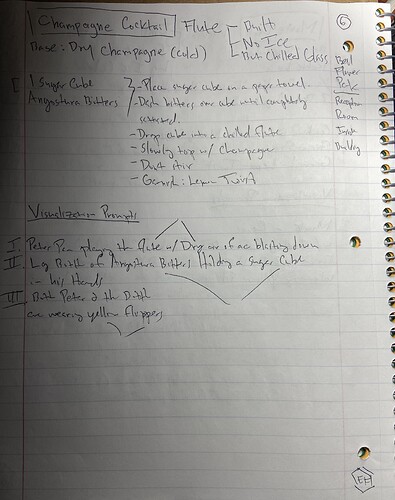 Champagne Cocktail Flute - Built
Base: Dry Champagne (cold) - No Ice
- But Chilled Glass
6
Bowl
Flower
Park
Reception
Room
Inside
Building
1 Sugar Cube - Place sugar cube on a paper towel.
Angostura Bitters - Dash bitters over cube until completely
saturated.
- Drop cube into a chilled flute
- Slowly top w/ Champagne
- Don't stir
- Garnish: Lemon Twist
Visualization Prompts
I Peter Pan playing the flute w/ Dry air of ac blasting down
II Log Bottle of Angostura Bitters Holding a Sugar Cube
in his Hands
III Both Peter & the Bottle
are wearing yellow flippers
EH